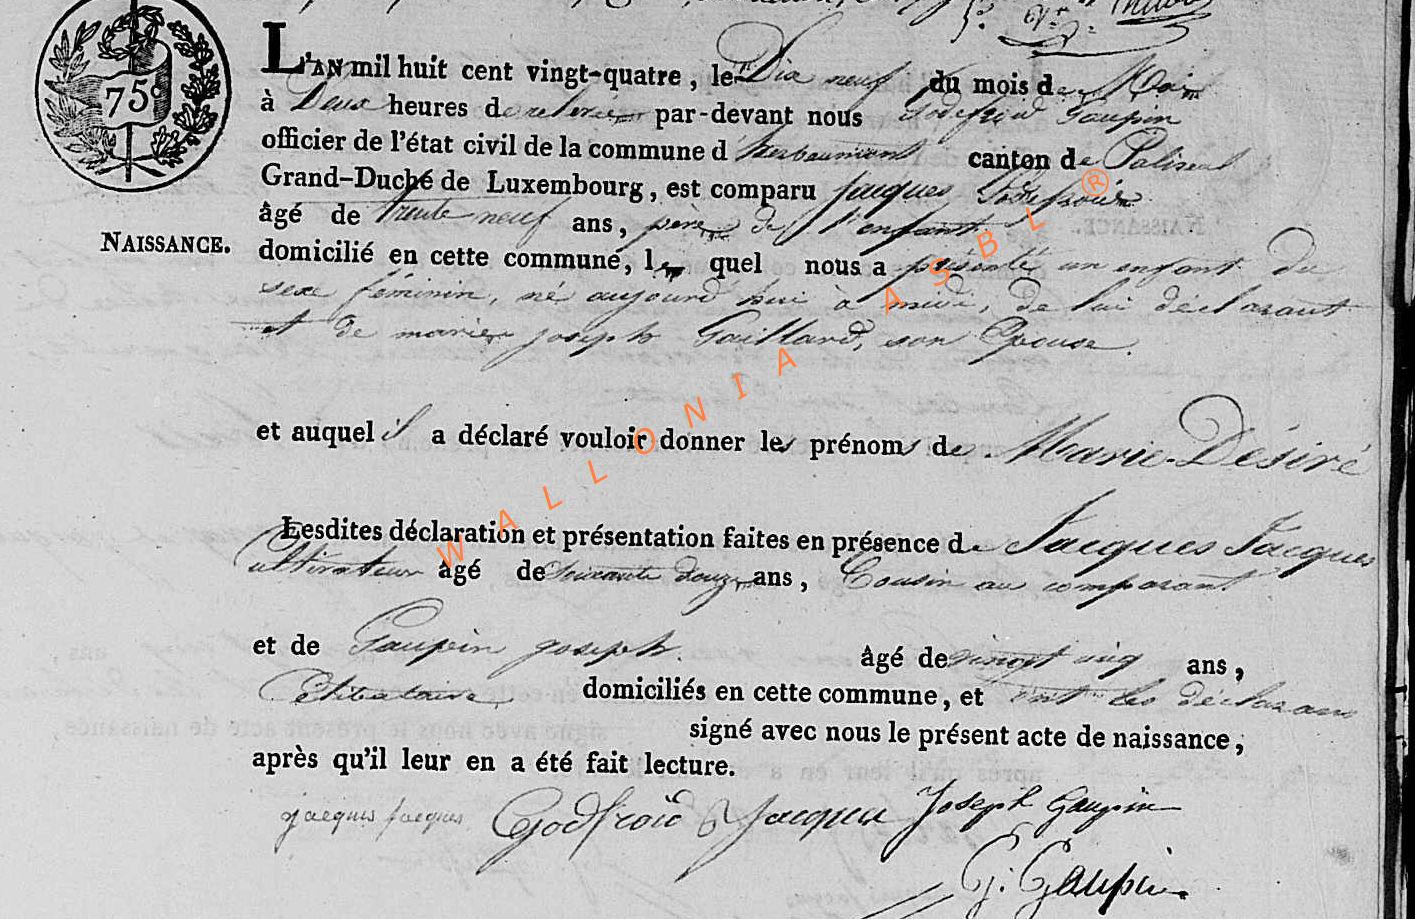 75c
L'AN mil huit cent vingt-quatre, le Dix neuf du mois de Mai
à Deux heures de relevée par-devant nous Godefroid Gaupin
officier de l'état civil de la commune d'herbeumont canton de Paliseul
Grand-Duché de Luxembourg, est comparu Jacques Godefroid
âgé de trente neuf ans, père de l'enfant
NAISSANCE.
domicilié en cette commune, lequel nous a présenté un enfant du
sexe féminin, né aujourd'hui à midi, de lui déclarant
et de marie joseph Gaillard, son Epouse.
et auquel il a déclaré vouloir donner les prénoms de Marie-Désiré
Lesdites déclaration et présentation faites en présence de Jacques Jacques
Cultivateur âgé de soixante douze ans, Cousin au comparant
et de Gaupin joseph. âgé de vingt cinq ans,
domiciliés en cette commune, et ont les déclarans
signé avec nous le présent acte de naissance,
après qu'il leur en a été fait lecture.
jacques jacques Godfroid Jacques Joseph Gaupin
G. Gaupin
WALLONIA ASBL ®